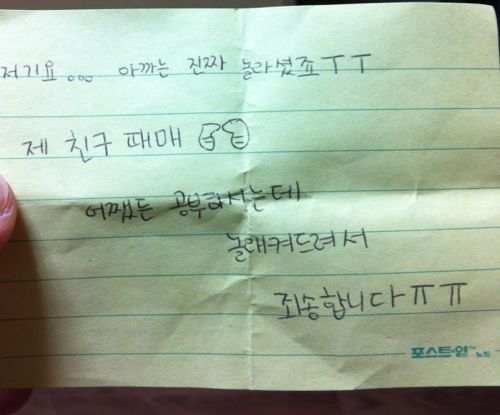 저기요... 아까는 진짜 놀라셨죠ㅜㅜ
제 친구 때매
어쨌든 공부하시는데
놀래켜드려서
죄송합니다ㅠㅠ
포스트-잇™노트